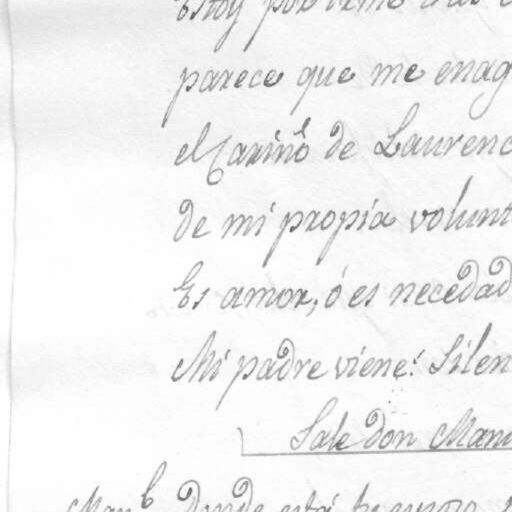 Estoy por irme
parece que me enag
el Cariño de Laurenc
de mi propia volunt
Es amor, ó es necedad
Mi padre viene! Silen
Sale don Man
Man.l donde está